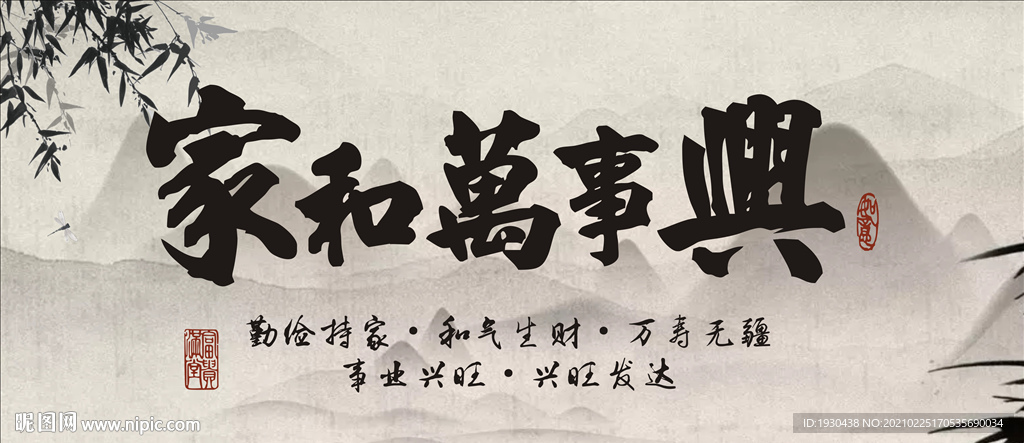 家和萬事興
如意
勤俭持家·和气生财·万寿无疆
事业兴旺·兴旺发达
富貴滿堂
昵图网 www.nipic.com
ID:1930438 NO:20210225170535690034